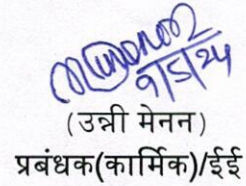 9/5/24
(उन्नी मेनन)
प्रबंधक(कार्मिक)/ईई